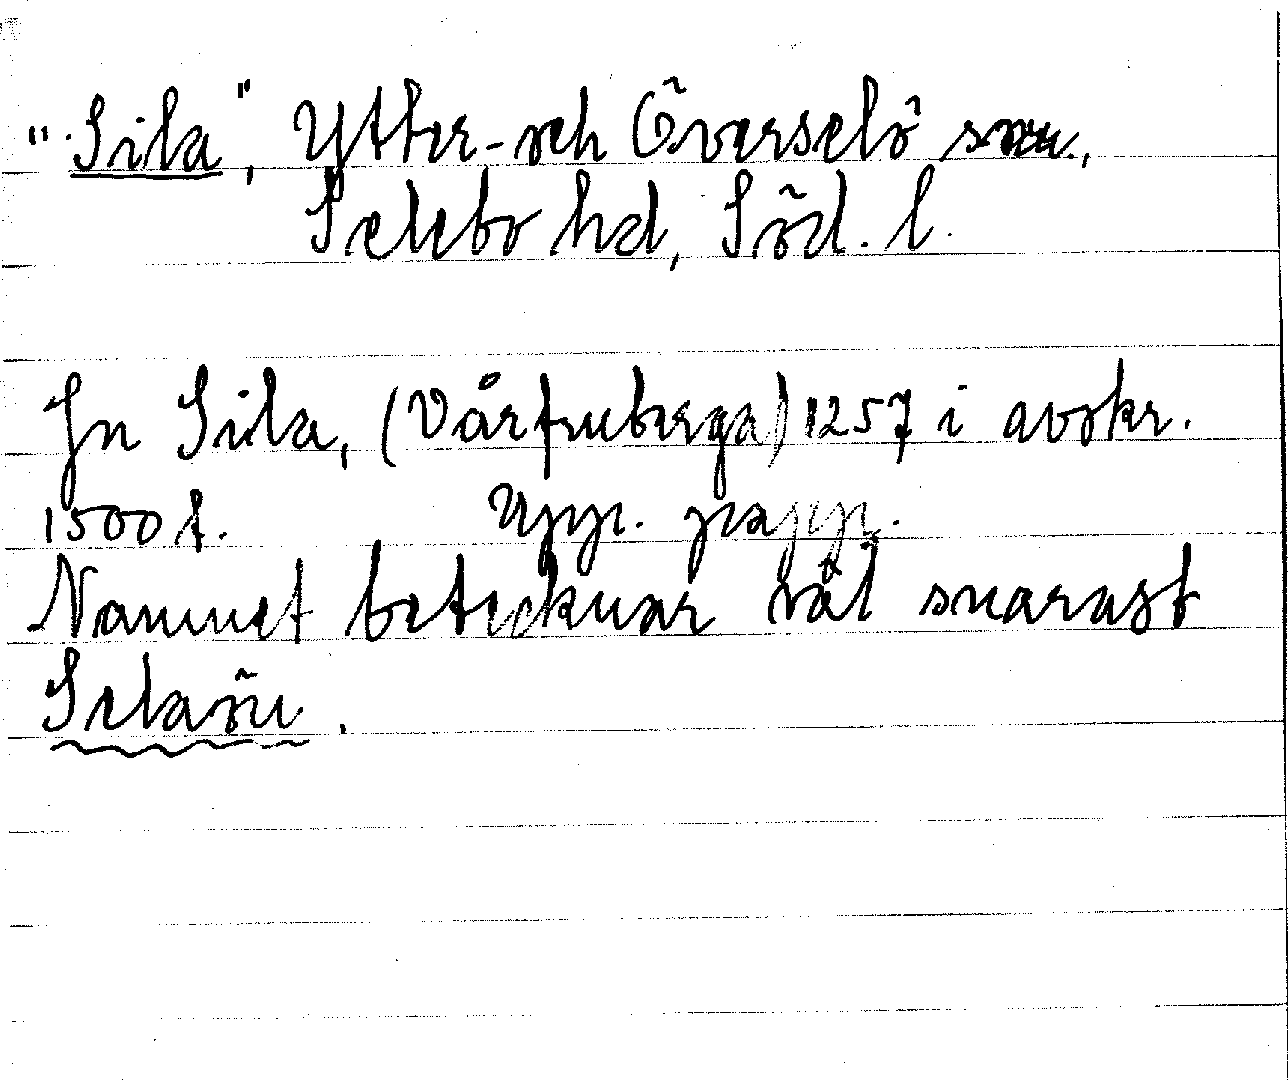 "Sila", Ytter- och Överselö snr.,
Selebo hd, Söd. l.
Jn Sila, (Vårfruberga) 1257 i avskr.
1500 t. Upps. papp.
Namnet betecknar väl snarast
Selaön.